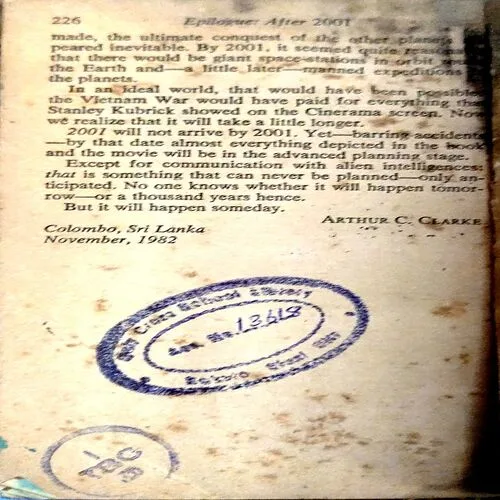 226 Epilogue: After 2001
made, the ultimate conquest of the other planets
peared inevitable. By 2001, it seemed quite
that there would be giant space-stations in orbit
the Earth and—a little later—manned expeditions
the planets.
In an ideal world, that would have been possible
the Vietnam War would have paid for everything
Stanley Kubrick showed on the Cinerama screen. Now
we realize that it will take a little longer.
2001 will not arrive by 2001. Yet—barring accidents
—by that date almost everything depicted in the book
and the movie will be in the advanced planning stage.
Except for communication with alien intelligences:
that is something that can never be planned—only an-
ticipated. No one knows whether it will happen tomor-
row—or a thousand years hence.
But it will happen someday.
ARTHUR C. CLARKE
Colombo, Sri Lanka
November, 1982
Cross School Library
Acc. No. 13618
Bokaro Steel City